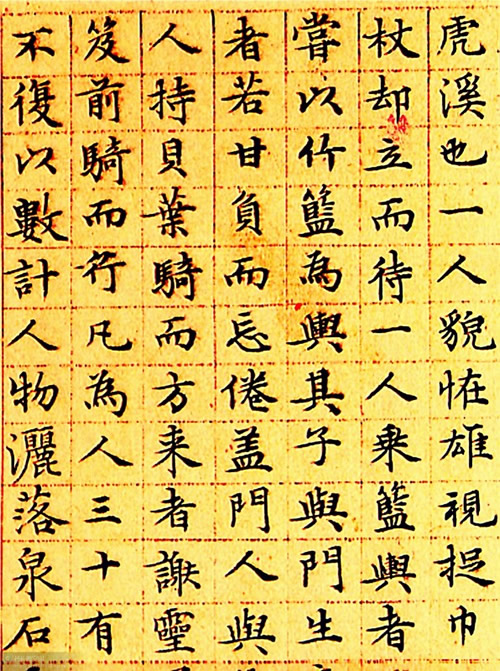 虎溪也一人貌恠雄視捉巾
杖却立而待一人乘籃輿者
嘗以竹籃為輿其子與門生
者若甘負而忘倦盖門人與
人持貝葉騎而方来者謝靈
笈前騎而行凡為人三十有
不復以數計人物灑落泉石